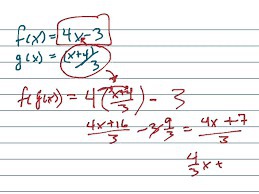 f(x) = 4x - 3
g(x) = (x+4)/3
f(g(x)) = 4((x+4)/3) - 3
(4x+16)/3 - 3 9/3 = (4x+7)/3
4/3 x +